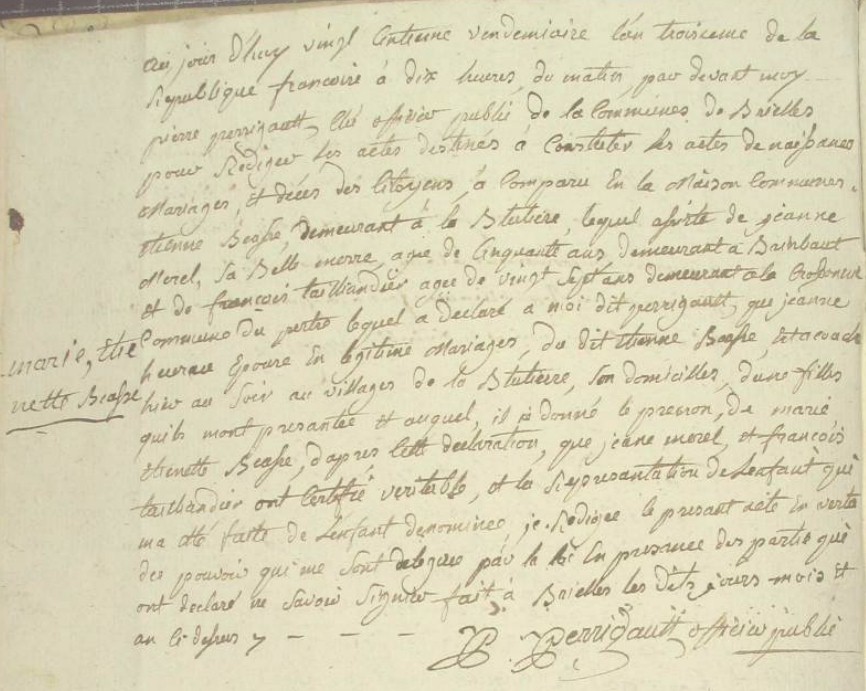 au jour d'huy vingt Cintieme vendemiaire l'an troisieme de la
Republique francoise à dix heures, du matin, par devant moy
pierre perrigault, Elu officier public de la Communes de Brielles
pour Rediger les actes destinés à Constater les actes de naissances
Mariages, et décès des Citoyens, à Comparu En la Maison Communes
Etienne Beasse, demeurant à la Blutiere, lequel assisté de jeanne
Morel, Sa Belle merre, agee de Cinquante ans demeurant à Brimbaut
et de francois taillandier agee de vingt Sept ans demeurant a la
Commune du pertre lequel à Declaré à moi dit perrigault, que jeanne
heurau Epouse En legitime Mariages, du dit Etienne Beasse,
hier au Soir au villages de la Blutiere, Son domicilles, d'une filles
quils mont presantée et auquel, il à donné le prenon, de marie
Etienette Beasse, d'apres Cette declaration, que jeane morel, et francois
taillandier ont Certifié veritable, et la Representation de Lenfant qui
ma été faite de Lenfant denominée, je Redigee le presant acte En vertu
des pouvoir qui me Sont delegue par la loi En presance des partie qui
ont declaré ne Savoir Signer fait à Brielles les dits jours mois et
an Ci dessus
P Perrigault officier public
marie, Etie
nette Beasse